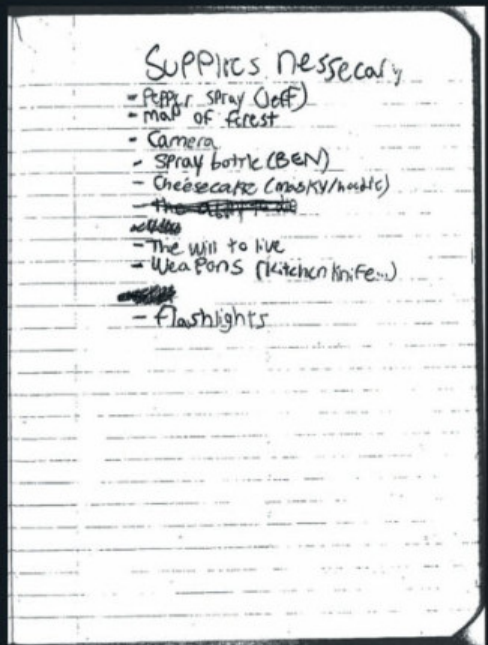 Supplies nessecary
- Pepper spray (Jeff)
- map of forest
- Camera
- spray bottle (BEN)
- Cheesecake (masky/hoodie)
- The
- The will to live
- Weapons (kitchen knife...)
- flashlights